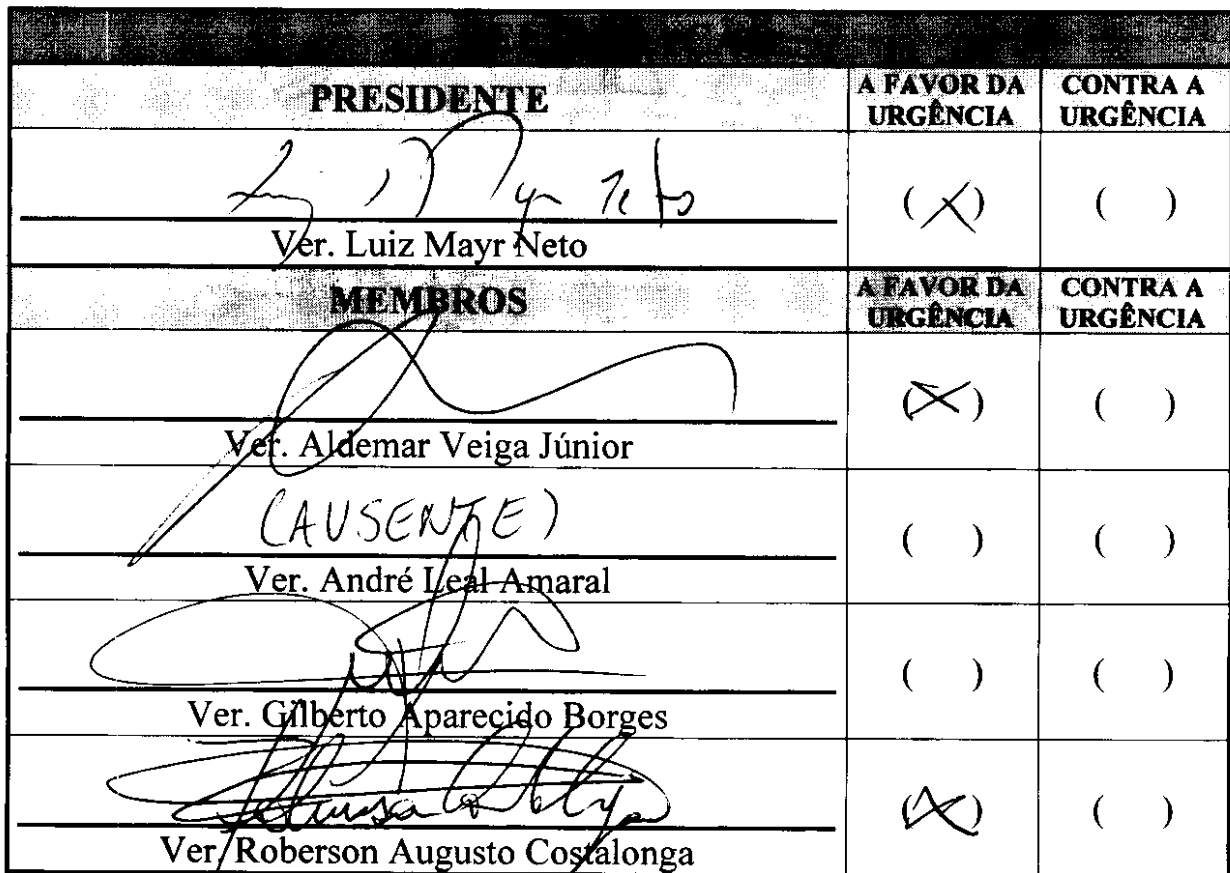 PRESIDENTE A FAVOR DA URGÊNCIA CONTRA A URGÊNCIA
(X) ( )
Ver. Luiz Mayr Neto
MEMBROS A FAVOR DA URGÊNCIA CONTRA A URGÊNCIA
(X) ( )
Ver. Aldemar Veiga Júnior
(AUSENTE) ( ) ( )
Ver. André Leal Amaral
( ) ( )
Ver. Gilberto Aparecido Borges
(X) ( )
Ver. Roberson Augusto Costalonga